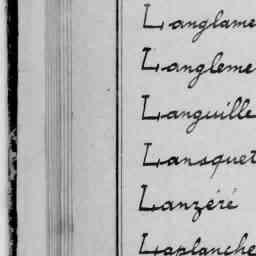 Langlame
Langleme
Languille
Lansquet
Lanzéré
Laplanche